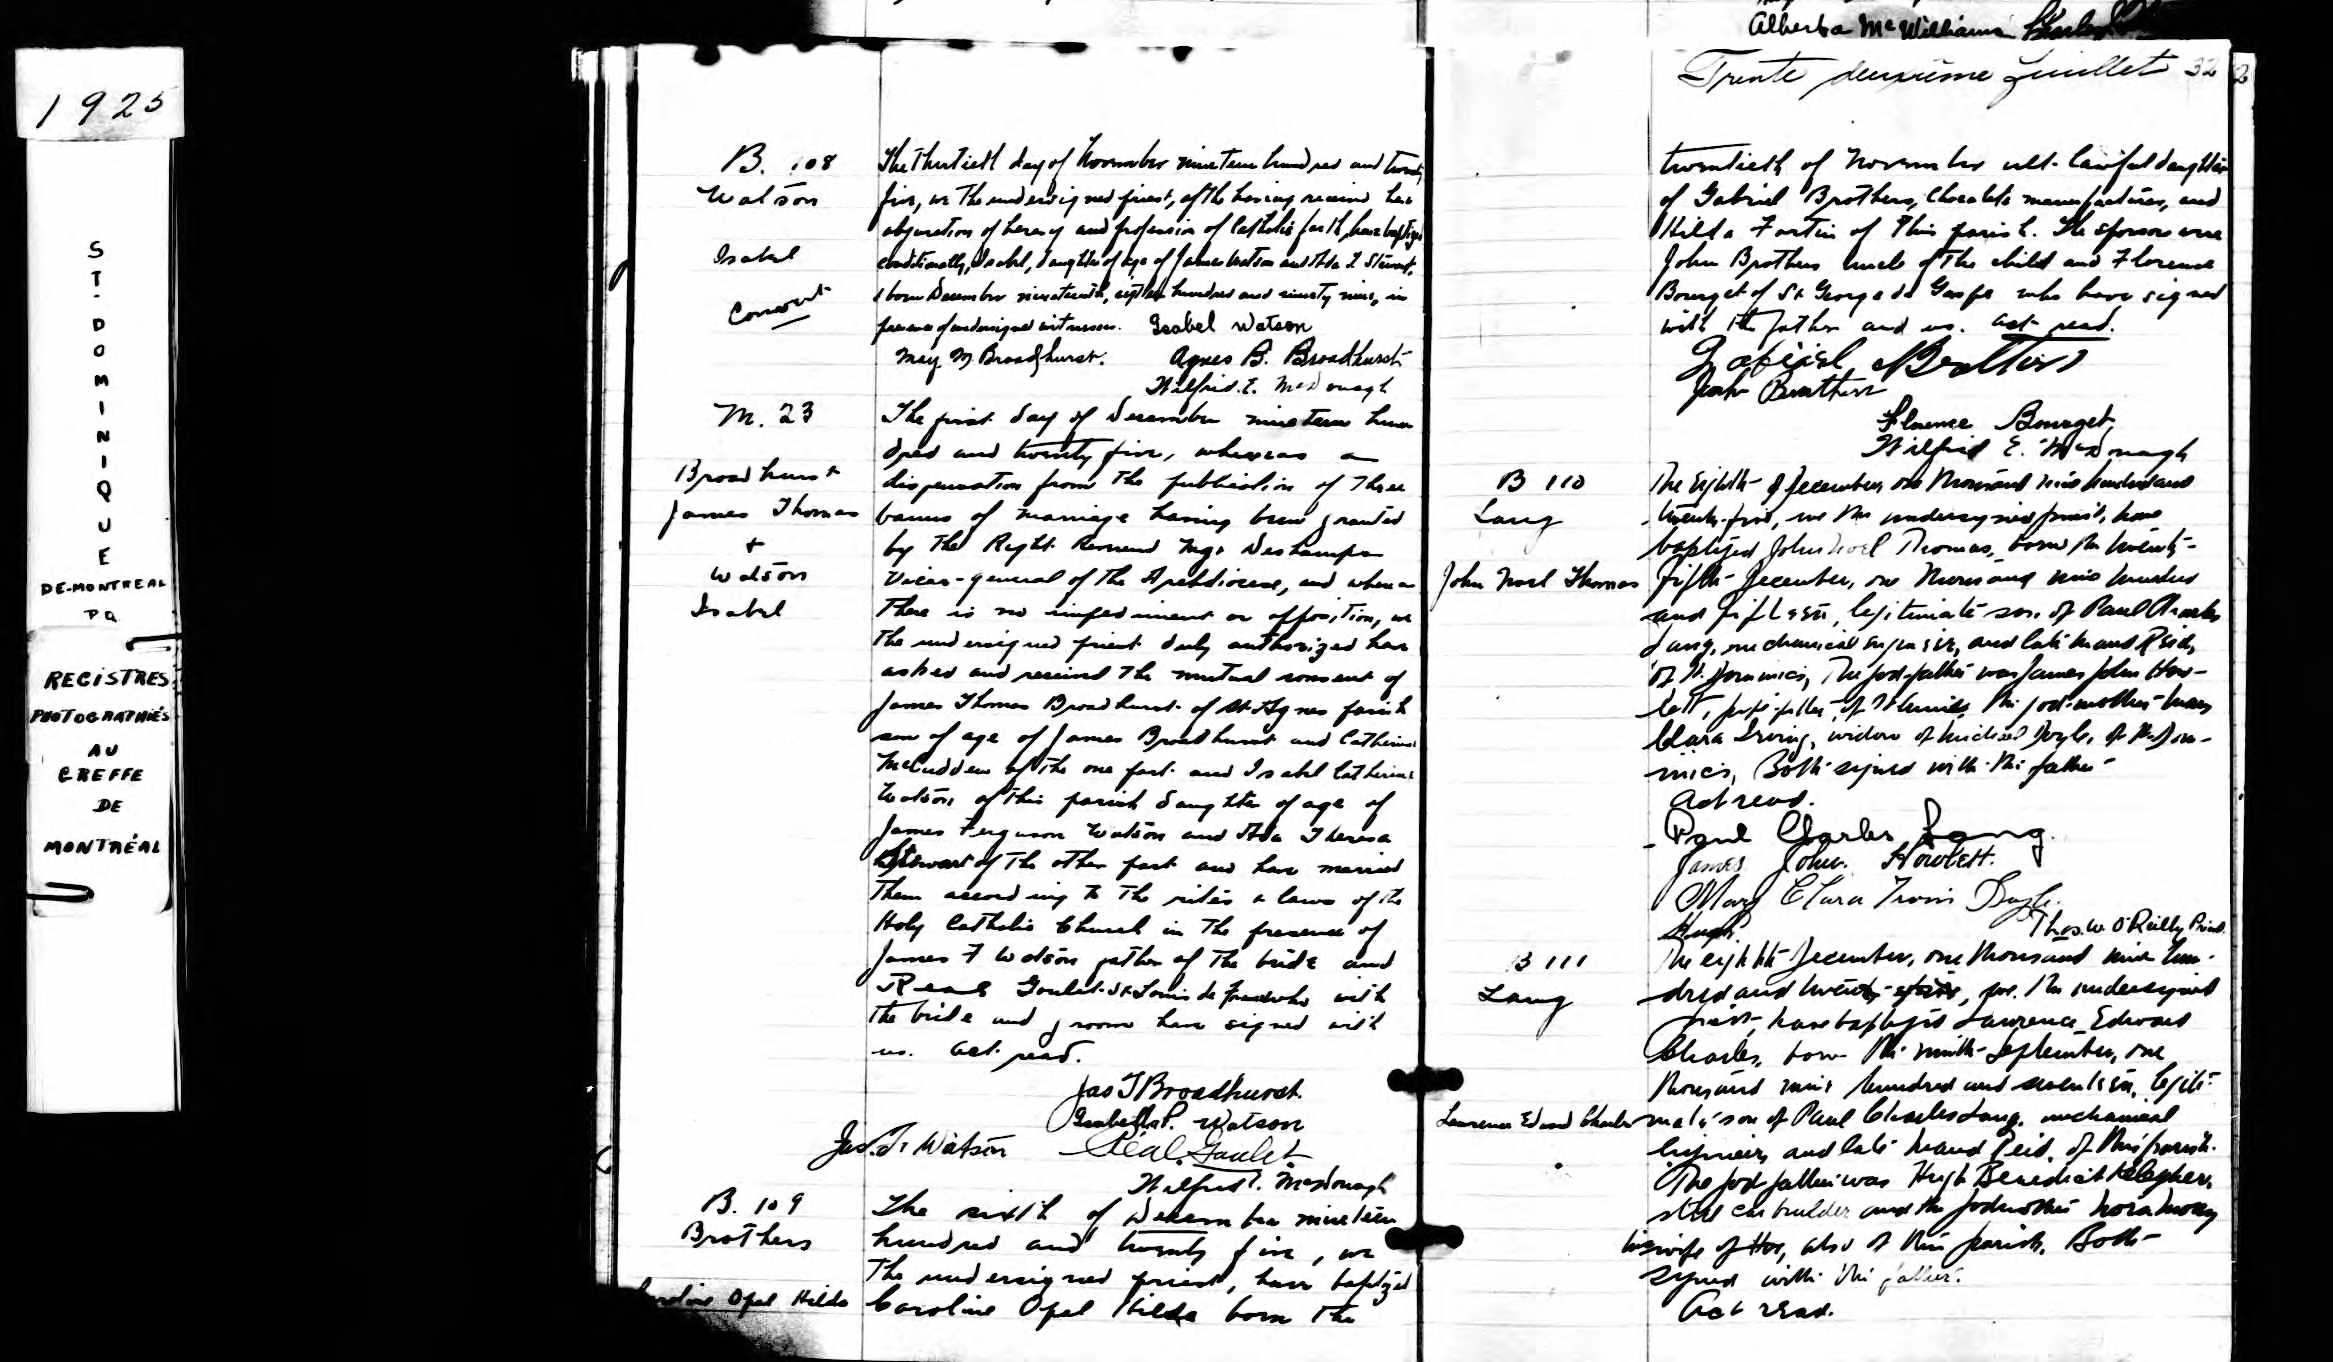 1925
ST. DOMINIQUE
DE-MONTREAL
PQ
REGISTRES
PHOTOGRAPHIÉS
AU
GREFFE
DE
MONTRÉAL
B. 108
Watson
Isabel
Convert
The Thirtieth day of November nineteen hundred and twenty
five, we the undersigned priest, after having received her
abjuration of heresy and profession of Catholic faith, have baptized
conditionally, Isabel, daughter of age of James Watson and Ada T. Stewart,
born December nineteenth, eighteen hundred and ninety nine, in
presence of undersigned witnesses. Isabel Watson
May M Broadhurst. Agnes B. Broadhurst
Wilfrid. E. McDonagh
M. 23
Broadhurst
James Thomas
+
Watson
Isabel
The first day of December nineteen hun
dred and twenty five, whereas a
dispensation from the publication of three
banns of marriage having been granted
by the Right Reverend Mgr Deschamps
Vicar-general of the Archdiocese, and whereas
there is no impediment or opposition, we
the undersigned priest duly authorized have
asked and received the mutual consent of
James Thomas Broadhurst of St Agnes parish
son of age of James Broadhurst and Catherine
McCudden of the one part and Isabel Catherine
Watson of this parish daughter of age of
James Ferguson Watson and Ada Theresa
Stewart of the other part and have married
them according to the rites & laws of the
Holy Catholic Church in the presence of
James F Watson father of the bride and
Real Goulet St Louis de France who with
the bride and groom have signed with
us. Act read.
Jas T Broadhurst.
Isabella P. Watson
Jas. F. Watson Réal. Goulet
Wilfrid E. McDonagh
B. 109
Brothers
Caroline Opal Hilda
The sixth of December nineteen
hundred and twenty five, we
the undersigned priest, have baptized
Caroline Opal Hilda born the
Alberta McWilliams
Trente deuxième feuillet 32
twentieth of November ult. lawful daughter
of Gabriel Brothers, Chocolate manufacturer, and
Hilda Fortin of this parish. The sponsors were
John Brothers uncle of the child and Florence
Bourget of St George de Gaspe who have signed
with the father and us. Act read.
Gabriel Brothers
John Brothers
Florence Bourget,
Wilfrid E. McDonagh
B 110
Lang
John Noel Thomas
The Eighth of December, one thousand nine hundred and
twenty-five, we the undersigned priest, have
baptized John Noel Thomas, born the twenty-
fifth December, one thousand nine hundred
and fifteen, legitimate son of Paul Charles
Lang, mechanical engineer, and late Maud Reid,
of St. Dominic, The god-father was James John How-
lett, of the god-mother Mary
Clara Irving, widow of Michael Doyle, of St. Dom-
inic's, Both signed with the father
Act read.
Paul Charles Lang.
James John. Howlett.
Mary Clara Irvin Doyle.
Hugh
Thos. W. O'Reilly Priest.
B 111
Lang
Lawrence Edward Charles
The eighth December, one thousand nine hun-
dred and twenty-five, we. the undersigned
priest, have baptized Lawrence Edward
Charles, born the ninth September, one
thousand nine hundred and seventeen, legiti-
mate son of Paul Charles Lang, mechanical
Engineer, and late Maud Reid, of this parish.
The god father was Hugh Benedict Kelegher,
steel car builder and the godmother Nora
his wife of the, also of this parish. Both
signed with the father.
Act read.